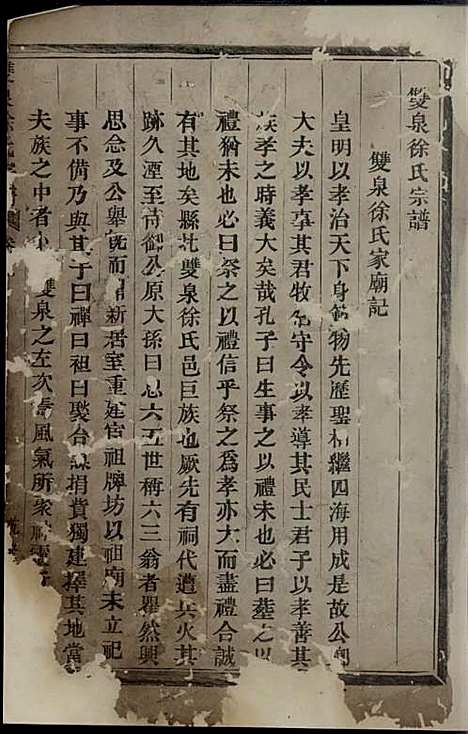 雙泉徐氏宗譜
雙泉徐氏家廟記
皇明以孝治天下身範物先歷聖相繼四海用成是故公卿
大夫以孝事其君牧伯守令以孝導其民士君子以孝善其
族孝之時義大矣哉孔子曰生事之以禮未也必曰葬之以
禮猶未也必曰祭之以禮信乎祭之爲孝亦大而盡禮合誠
有其地矣縣北雙泉徐氏邑巨族也厥先有祠代遭兵火其
跡久湮至侍御公原大孫曰恩六五世稱六三翁者瞿然興
思念及公舉旣而新居室重建官祖牌坊以祖廟未立祀
事不備乃與其子曰禪曰祖曰褧合捐貲獨建擇其地當
夫族之中者雙泉之左次風氣所聚